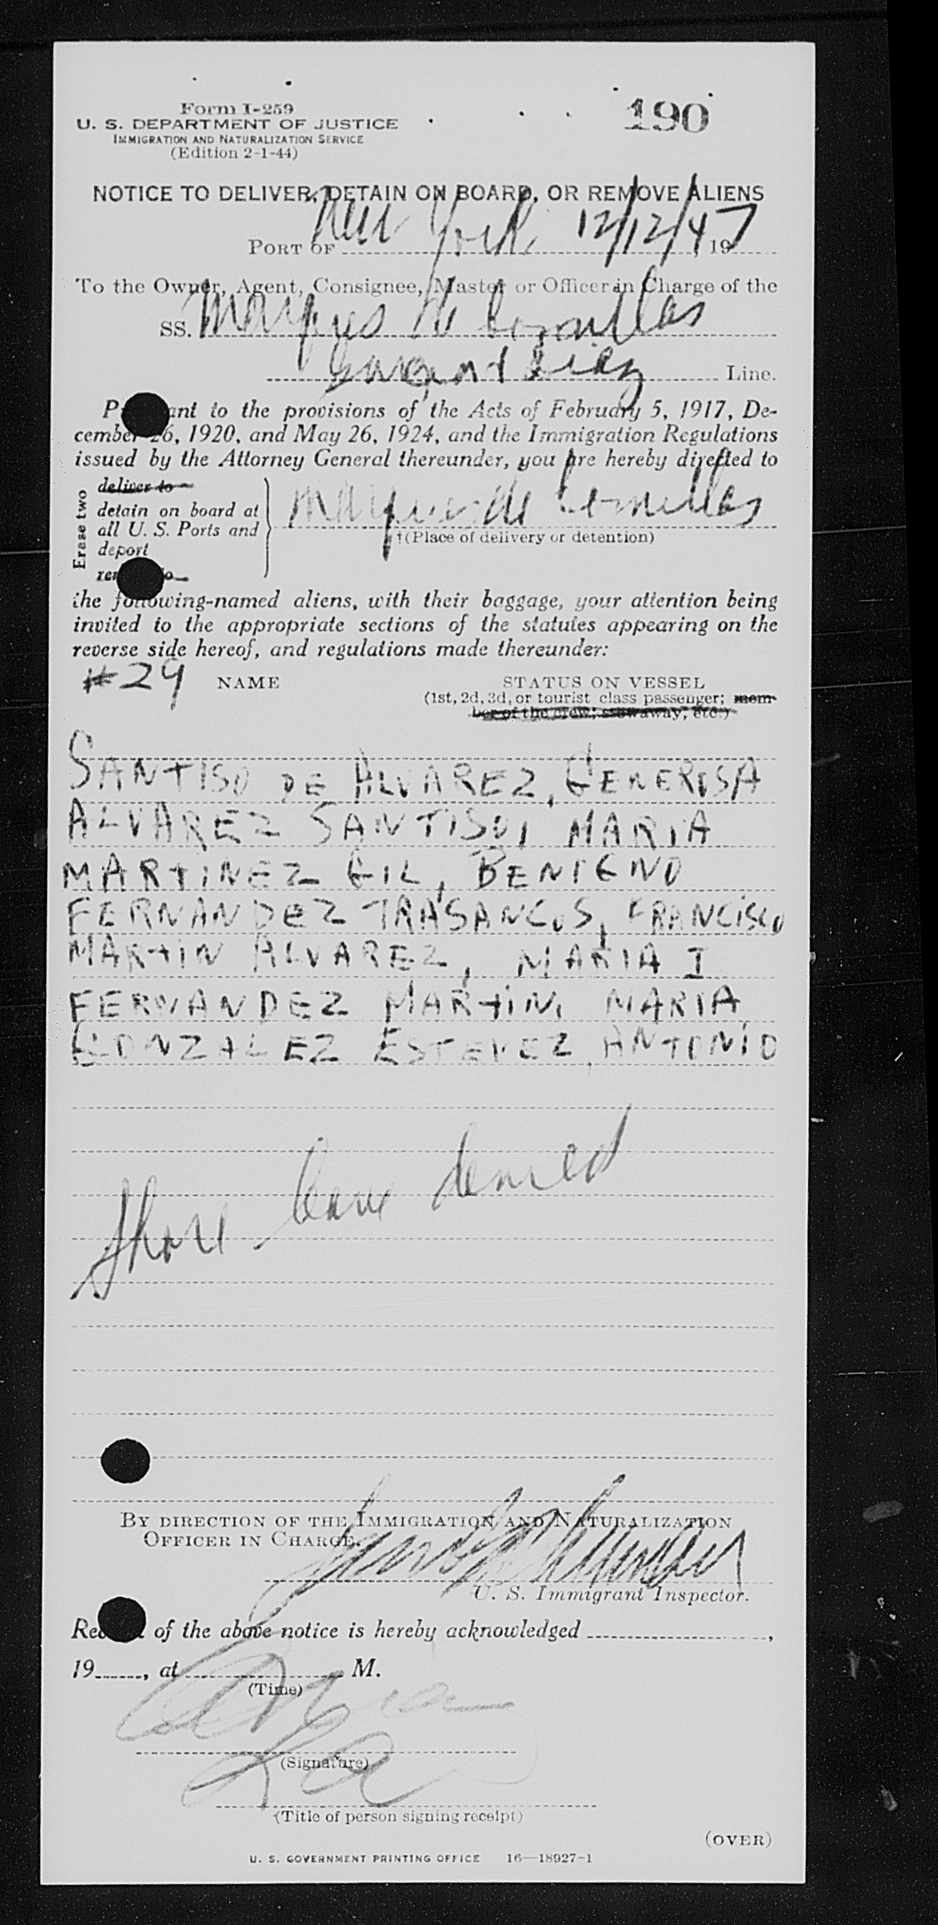 Form I-259
190
U. S. DEPARTMENT OF JUSTICE
IMMIGRATION AND NATURALIZATION SERVICE
(Edition 2-1-44)
NOTICE TO DELIVER, DETAIN ON BOARD, OR REMOVE ALIENS
PORT OF New York 12/12/47 19
To the Owner, Agent, Consignee, Master or Officer in Charge of the
SS. Marques de Comillas
Garcia & Diaz Line.
Pursuant to the provisions of the Acts of February 5, 1917, De-
cember 26, 1920, and May 26, 1924, and the Immigration Regulations
issued by the Attorney General thereunder, you are hereby directed to
Erase two
deliver to
detain on board at
all U. S. Ports and
deport
Marques de Comillas
†(Place of delivery or detention)
the following-named aliens, with their baggage, your attention being
invited to the appropriate sections of the statutes appearing on the
reverse side hereof, and regulations made thereunder:
#29 NAME STATUS ON VESSEL
(1st, 2d, 3d, or tourist class passenger; mem-
ber of the crew; stowaway; etc.)
SANTISO DE ALVAREZ, GENEROSA
ALVAREZ SANTISO, MARIA
MARTINEZ GIL, BENIGNO
FERNANDEZ TRASANCOS, FRANCISCO
MARTIN ALVAREZ, MARIA I
FERNANDEZ MARTIN, MARIA
GONZALEZ ESTEVEZ, ANTONIO
Shore leave denied
BY DIRECTION OF THE IMMIGRATION AND NATURALIZATION
OFFICER IN CHARGE.
U. S. Immigrant Inspector.
Receipt of the above notice is hereby acknowledged ,
19 , at M.
(Time)
(Signature)
(Title of person signing receipt)
(OVER)
U. S. GOVERNMENT PRINTING OFFICE 16—18927-1